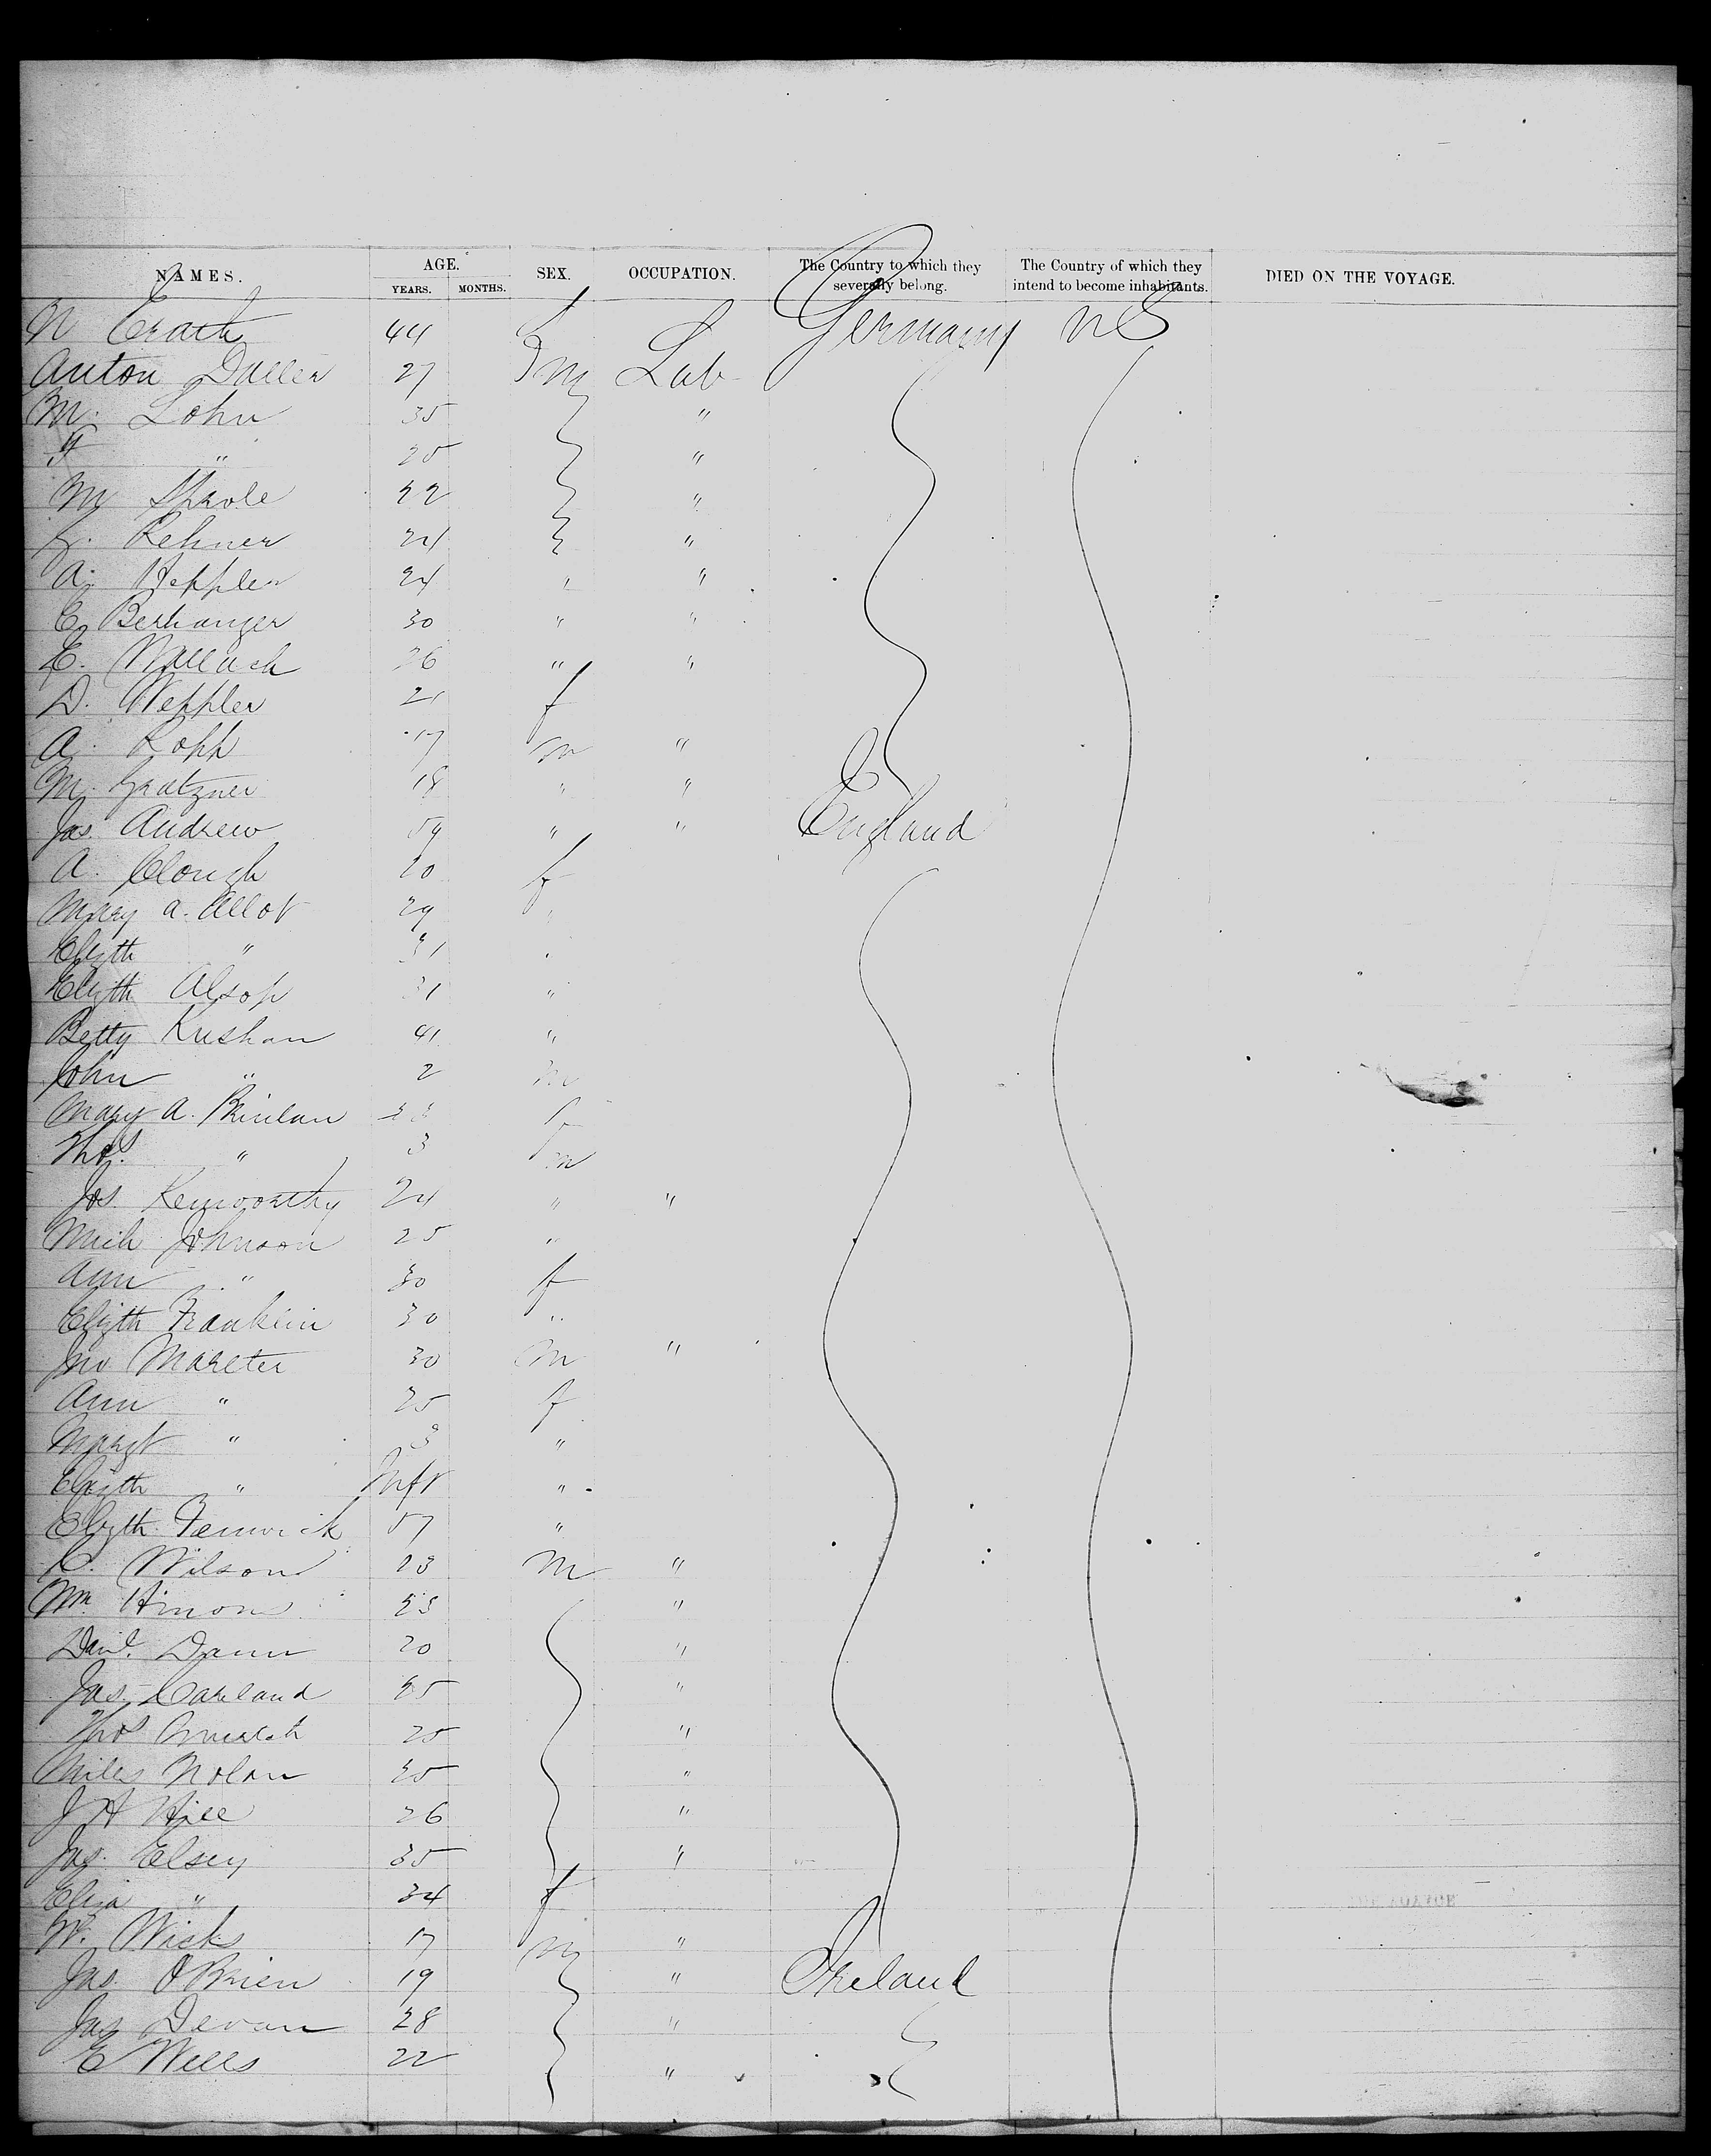 NAMES. AGE. YEARS. MONTHS. SEX. OCCUPATION. The Country to which they severally belong. The Country of which they intend to become inhabitants. DIED ON THE VOYAGE.
N 44 f Germany US
Anton 27 m Lab
M. Lohn 35 "
" 25 "
M 22 "
Rehner 24 "
A. Heppler 24 " "
E. Berhanger 30 " "
E. Wallach 26 " "
D. Weppler 21 f
A. Kopp 17 m "
M. Gratzner 18 " "
Jas. Andrew 59 " " England
A. Clough 20 f
Mary A. Allot 29 "
Elizth " 31 "
Elizth Alsop 31 "
Betty 41 "
John " 2 m
Mary A. f
Thos. " 3 m
Jos. Kenworthy 24 " "
Mich Johnson 25 "
Ann " 30 f
Elizth Franklin 30 "
Jno 30 m "
Ann " 25 f
Margt " 3 "
Elizth " Inft "
Elizth Fenwick 57 "
C. Wilson 23 m "
Wm "
Danl. Dann 20 "
Jas. 25 "
Thos 25 "
Miles Nolan 35 "
J H Hill 26 "
Jas. Elsey 35 "
Eliza " 34 f
W. Wicks 17 m "
Jas. O'Brien 19 " Ireland
Jas Devan 28 "
E Wells 22 "